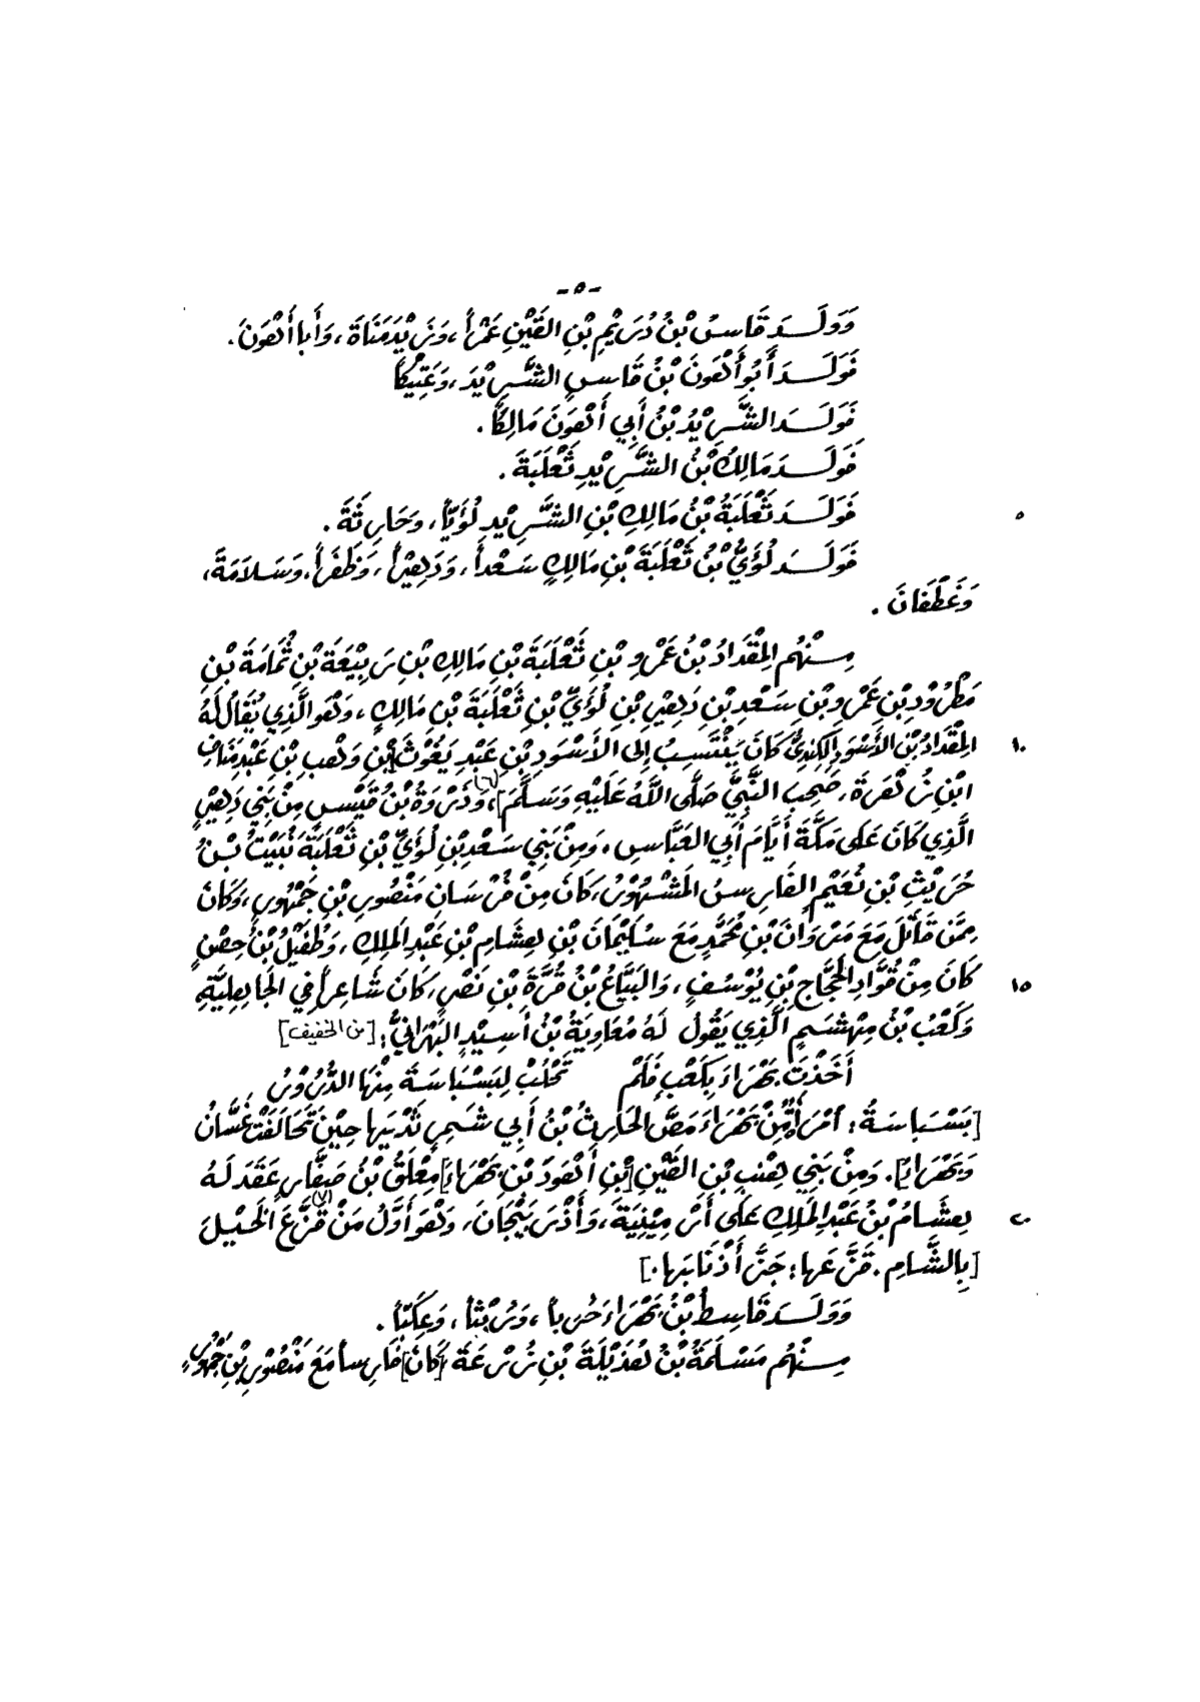 -٥-
وَوَلَدَ قَاسُ بْنُ دُرَيْمِ بْنِ القَيْنِ عَمْراً، وَزَيْدَ مَنَاةَ، وَأَبا أَهْوَنَ.
فَوَلَدَ أَبُو أَهْوَنَ بْنُ قَاسٍ الشَّرِيْدَ، وَعَتِيْكاً
فَوَلَدَ الشَّرِيْدُ بْنُ أَبِي أَهْوَنَ مَالِكاً.
فَوَلَدَ مَالِكُ بْنُ الشَّرِيْدِ ثَعْلَبَةَ.
٥ فَوَلَدَ ثَعْلَبَةُ بْنُ مَالِكِ بْنِ الشَّرِيْدِ لُؤَيّاً، وَحَارِثَةَ.
فَوَلَدَ لُؤَيُّ بْنُ ثَعْلَبَةَ بْنِ مَالِكٍ سَعْداً، وَدَهِيْراً، وَظَفَراً، وَسَلَامَةَ،
وَغَطَفَانَ.
مِنْهُم المِقْدَادُ بْنُ عَمْرِو بْنِ ثَعْلَبَةَ بْنِ مَالِكِ بْنِ رَبِيْعَةَ بْنِ ثُمَامَةَ بْنِ
مَطْرُوْدِ بْنِ عَمْرِو بْنِ سَعْدِ بْنِ دَهِيْرِ بْنِ لُؤَيِّ بْنِ ثَعْلَبَةَ بْنِ مَالِكٍ، وَهْوَ الَّذِي يُقَالُ لَهُ
١٠ المِقْدَادُ بْنُ الأَسْوَدِ الكِنْدِيُّ كَانَ يَنْتَسِبُ إِلى الأَسْوَدِ بْنِ عَبْدِ يَغُوْثَ [بْنِ وَهْبِ بْنِ عَبْدِ مَنَافِ
ابْنِ زُهْرَةَ، صَحِبَ النَّبِيَّ صَلَّى اللهُ عَلَيْهِ وَسَلَّمَ]، (٦) وَذَرْوَةُ بْنُ قَيْسٍ مِنْ بَنِي دَهِيْرٍ
الَّذِي كَانَ عَلَى مَكَّةَ أَيَّامَ أَبِي العَبَّاسِ، وَمِنْ بَنِي سَعْدِ بْنِ لُؤَيِّ بْنِ ثَعْلَبَةَ نُبَيْتُ بْنُ
حُرَيْثِ بْنِ نُعَيْمٍ الفَارِسُ المَشْهُوْرُ، كَانَ مِنْ فُرْسَانِ مَنْصُورِ بْنِ جَمْهُورٍ، وَكَانَ
مِمَّنْ قَاتَلَ مَعَ مَرْوَانَ بْنِ مُحَمَّدٍ مَعَ سُلَيْمَانَ بْنِ هِشَامِ بْنِ عَبْدِ المَلِكِ، وَطُفَيْلُ بْنُ حِصْنٍ
١٥ كَانَ مِنْ قُوَّادِ الحَجَّاجِ بْنِ يُوْسُفٍ، وَالبَيَّاعُ بْنُ قُرَّةَ بْنِ نَصْرٍ، كَانَ شَاعِراً فِي الجَاهِلِيَّةِ
وَكَعْبُ بْنُ مِهْشَمٍ الَّذِي يَقُولُ لَهُ مُعَاوِيَةُ بْنُ أَسِيْدٍ البَهْرَانِيُّ: [من الخفيف]
أَخَذْتَ بَهْرَاءَ بِكَعْبٍ فَلَمْ تَحْلُبْ لِبَسْبَاسَةَ مِنْهَا الدُّرُوْرُ
[بَسْبَاسَةُ: امْرَأَةٌ مِنْ بَهْرَاءَ مَصَّ الحَارِثُ بْنُ أَبِي شَمِرٍ ثَدْيَيها حِيْنَ تَحَالَفَتْ غَسَّانُ
وَبَهْرَاءُ]. وَمِنْ بَنِي هِنْبِ بْنِ القَيْنِ [بْنِ أَهْوَدَ بْنِ بَهْرَاءَ] مِعْلَقُ بْنُ صَفَّارٍ عَقَدَ لَهُ
٢٠ هِشَامُ بْنُ عَبْدِ المَلِكِ عَلَى أَرْمِيْنِيَةَ، وَأَذْرَبَيْجَانَ، وَهْوَ أَوَّلُ مَنْ قَزَّعَ (٧) الخَيْلَ
[بِالشَّامِ. قَزَّعَها: جَزَّ أَذْنَابَها.]
وَوَلَدَ قَاسِطُ بْنُ بَهْرَاءَ حُرْباً، وَرُبْثاً، وَعِكَبّاً.
مِنْهُم مَسْلَمَةُ بْنُ هُذَيْلَةَ بْنِ زُرْعَةَ [كَانَ] فَارِساً مَعَ مَنْصُوْرِ بْنِ جُمْهُوْرٍ،